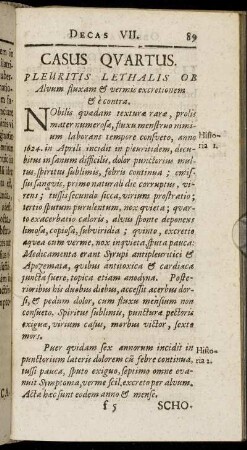 DECAS VII. 89
CASUS QVARTUS.
PLEURITIS LETHALIS OB
Alvum fluxam & vermis excretionem
& è contra.
NObilis quædam texturæ raræ, prolis
mater numerosa, fluxu menstruo nimium
laborans tempore consveto, anno
Histo-
ria 1.
1624. in Aprili incidit in pleuritidem, decu-
bitus in sanum difficilis, dolor punctorius mul-
tus, spiritus sublimis, febris continua; emis-
sus sangvis, primo naturali die corruptus, vi-
rens; tussis secunda sicca, varium prostratio;
tertio sputum purulentum, nox quieta; quar-
to exacerbatio caloris, alvus sponte deponens
limosa, copiosa, subviridia; quinto, excreto
aquea cum verme, nox inqvieta, sputa pauca:
Medicamenta erant Syrupi antipleuritici &
Apozemata, qvibus antitoxica & cardiaca
juncta fuere, topica etiam anodyna. Poste-
rioribus his duobus diebus, accessit acerbus dor-
si, & pedum dolor, cum fluxu mensium non
consueto. Spiritus sublimis, puncturæ pectoris
exiguæ, virium casus, morbus victor, sexta
mors.
Puer quidam sex annorum incidit in
Histo-
ria 2.
punctorium lateris dolorem cū febre continua,
tussi pauca, sputo exiguo, septimo omne eva-
nuit Symptoma, verme scil. excreto per alvum.
Acta hæc sunt eodem anno & mense.
f 5 SCHO-